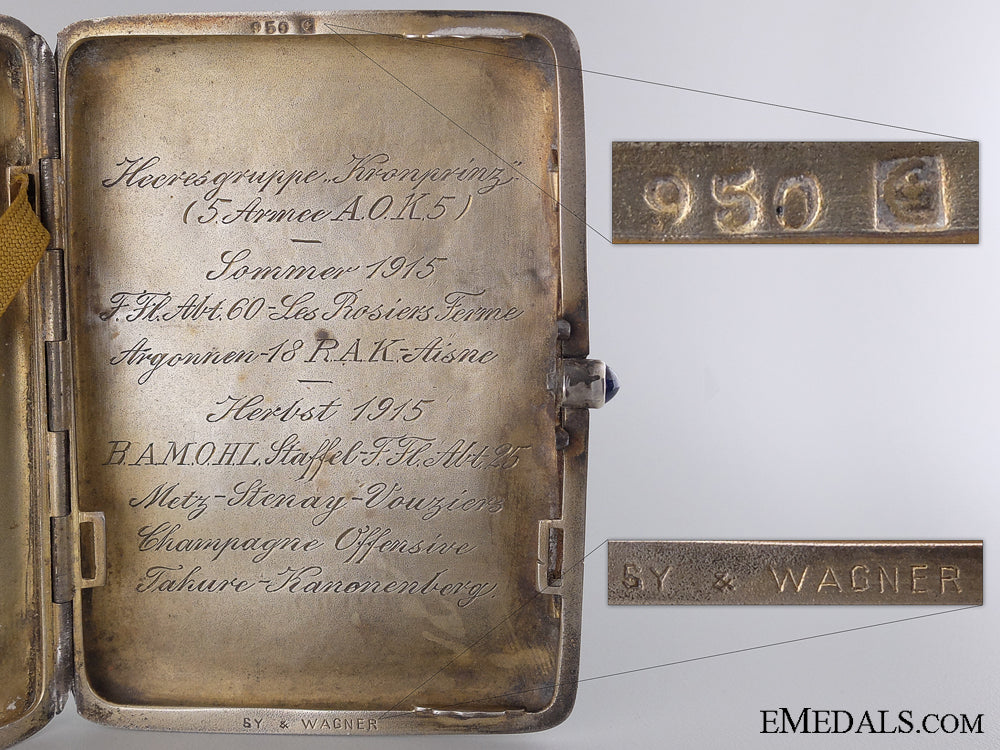 950
Heeresgruppe „Kronprinz"
(5 Armee A.O.K.5)
Sommer 1915
F.Fl.Abt.60-Les Rosiers Ferme
Argonnen-18 R.A.K.-Aisne
Herbst 1915
B.A.M.O.H.L. Staffel-F.Fl.Abt.25
Metz-Stenay-Vouziers
Champagne Offensive
Tahure-Kanonenberg.
SY & WAGNER
950
SY & WAGNER
EMEDALS.COM